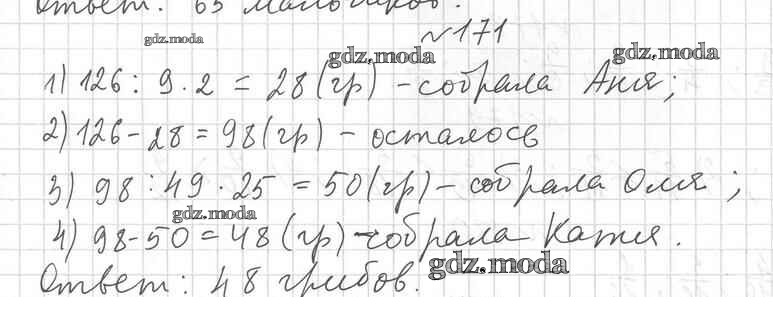 Ответ: 65 мальчиков.
№171
gdz.moda
gdz.moda
gdz.moda
1) 126 : 9 · 2 = 28 (гр) – собрала Аня;
2) 126 – 28 = 98 (гр) – осталось
3) 98 : 49 · 25 = 50 (гр) – собрала Оля;
gdz.moda
4) 98 – 50 = 48 (гр) – собрала Катя.
Ответ: 48 грибов.
gdz.moda